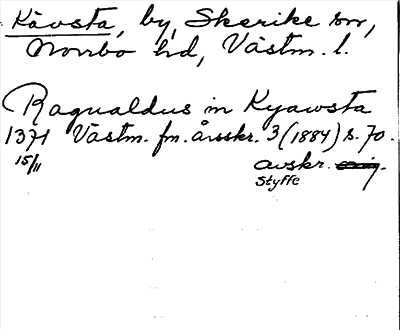 Kävsta, by, Skerike sn,
Norrbo hd, Västm. l.
Ragualdus in Kyawsta
1371 Västm. fm. årsskr. 3 (1884) s. 70.
15/11 avskr.
Styffe